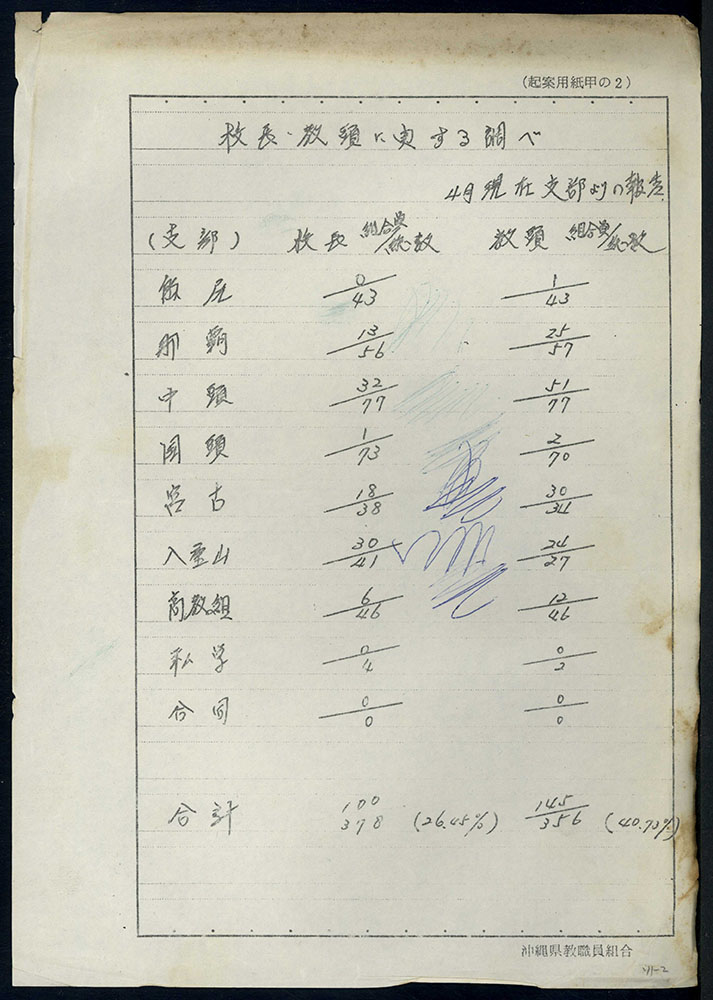 (起案用紙甲の2)
校長・教頭に関する調べ
4月現在支部よりの報告
(支部) 校長 組合員/総数 教頭 組合員/総数
島尻 0/43 1/43
那覇 13/56 25/57
中頭 32/77 51/77
国頭 1/73 2/70
宮古 18/38 30/34
八重山 30/41 24/27
高教組 6/46 12/46
私学 0/4 0/2
合同 0/0 0/0
合計 100/378 (26.45%) 145/356 (40.73%)
沖縄県教職員組合